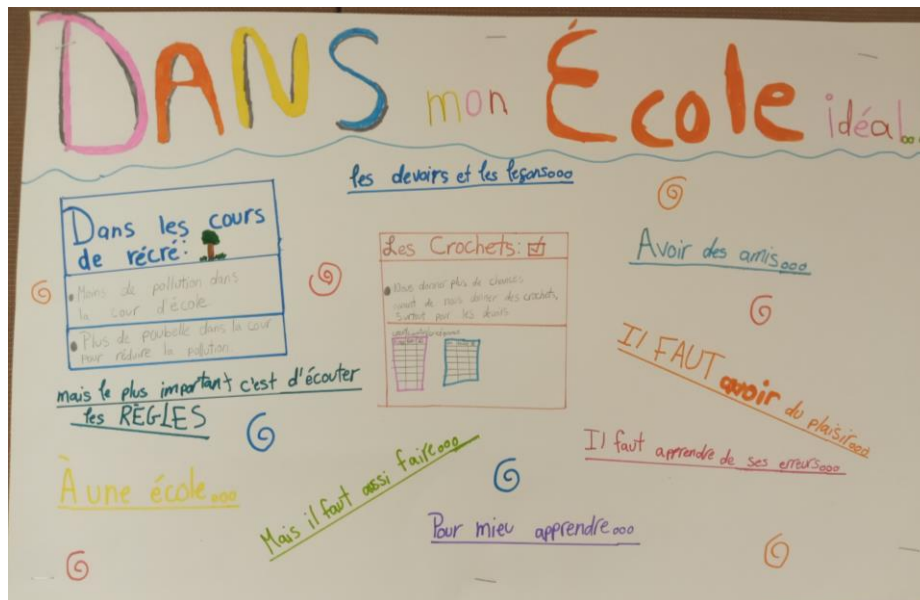 DANS mon École idéal...
les devoirs et les leçons...
Dans les cours
de récré:
• Moins de pollution dans
la cour d'école
• Plus de poubelle dans la cour
pour réduire la pollution
Les Crochets:
• Nous donner plus de chances
avant de nous donner des crochets,
Surtout pour les devoirs
Avoir des amis...
Il FAUT avoir du plaisir...
mais le plus important c'est d'écouter
les RÈGLES
Il faut apprendre de ses erreurs...
À une école...
Mais il faut assi faire...
Pour mieu apprendre...